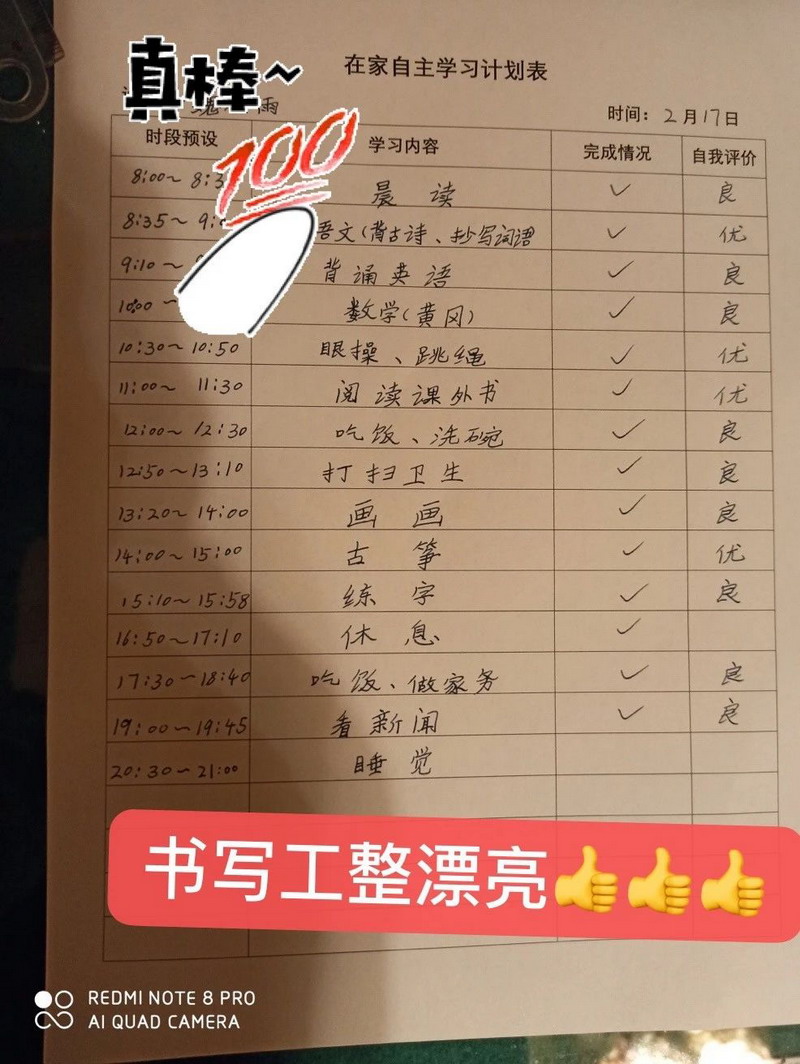 真棒~
在家自主学习计划表
雨
时间: 2月17日
时段预设 学习内容 完成情况 自我评价
100
8:00~ 8:3 晨 读 ✓ 良
8:35~ 9: 语文(背古诗、抄写词语 ✓ 优
9:10~ 背诵英语 ✓ 良
10:00~ 数学(黄冈) ✓ 良
10:30~10:50 眼操、跳绳 ✓ 优
11:00~ 11:30 阅读课外书 ✓ 优
12:00~ 12:30 吃饭、洗碗 ✓ 良
12:50~13:10 打扫卫生 ✓ 良
13:20~ 14:00 画 画 ✓ 良
14:00~15:00 古 筝 ✓ 优
15:10~15:58 练 字 ✓ 良
16:50~17:10 休 息 ✓
17:30~18:40 吃饭、做家务 ✓ 良
19:00~19:45 看新闻 ✓ 良
20:30~21:00 睡 觉
书写工整漂亮👍👍👍
REDMI NOTE 8 PRO
AI QUAD CAMERA